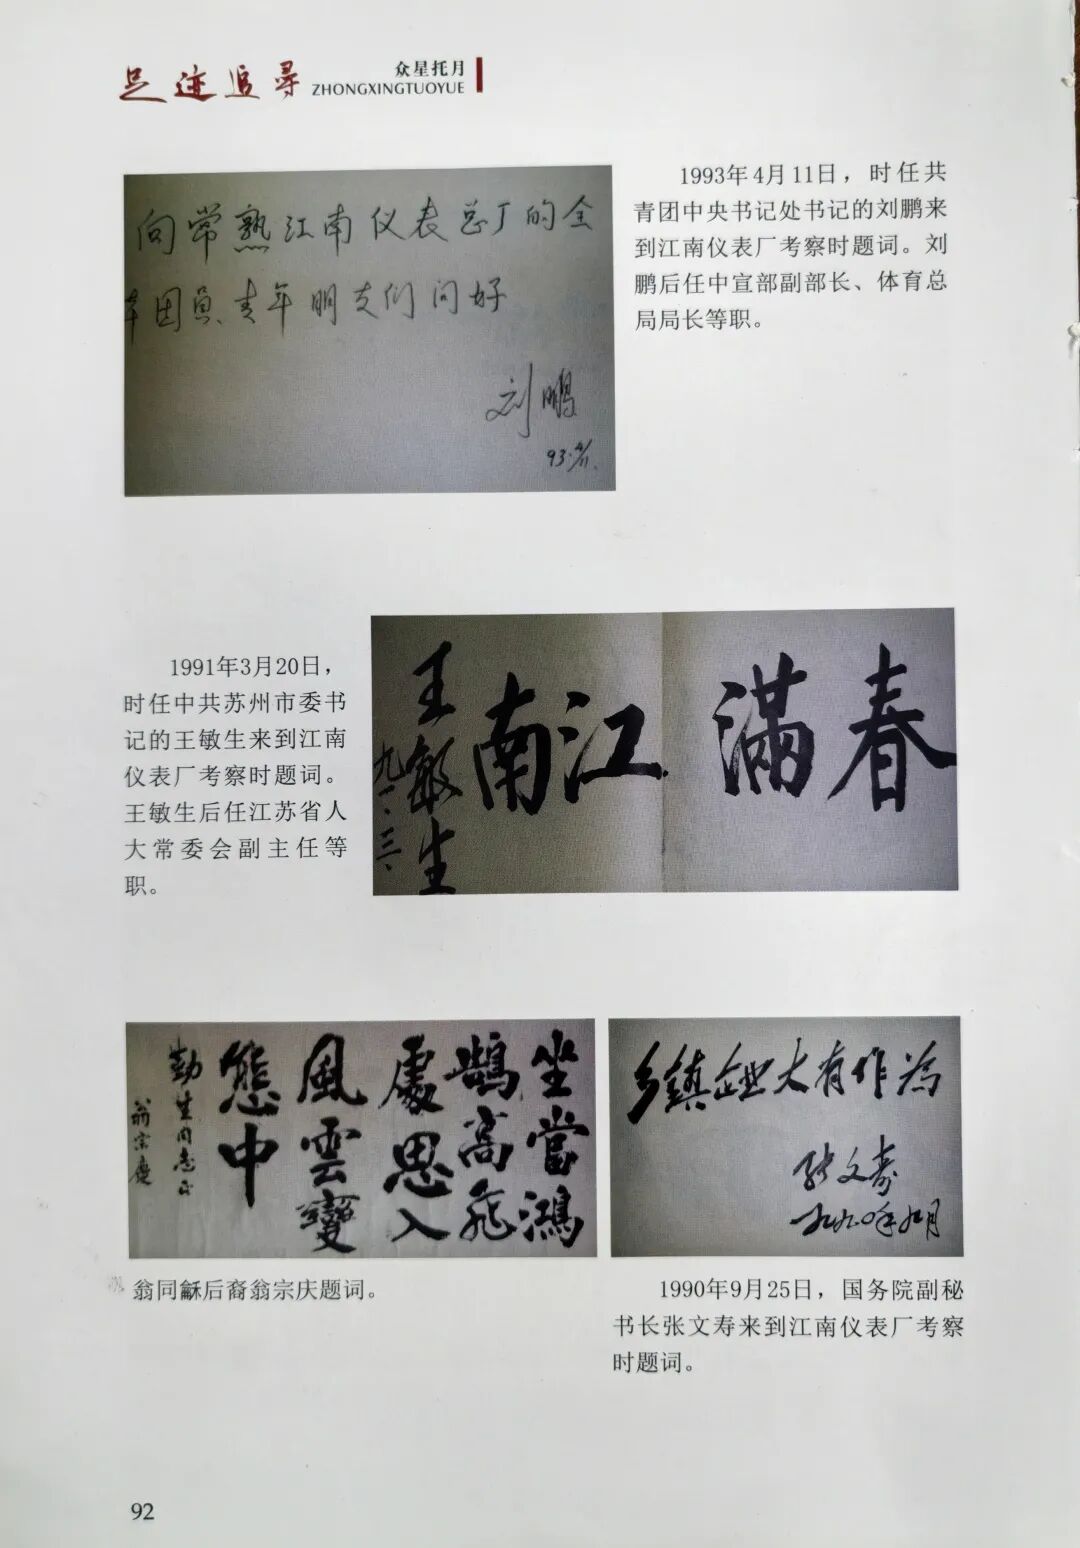 足迹追寻
众星托月
ZHONGXINGTUOYUE
向常熟江南仪表总厂的全
体团员青年朋友们问好
刘鹏
93.4/11.
1993年4月11日，时任共
青团中央书记处书记的刘鹏来
到江南仪表厂考察时题词。刘
鹏后任中宣部副部长、体育总
局局长等职。
1991年3月20日，
时任中共苏州市委书
记的王敏生来到江南
仪表厂考察时题词。
王敏生后任江苏省人
大常委会副主任等
职。
春满江南
王敏生
九一.三.
坐當鴻
鵠高飛
處思入
風雲變
態中
勤生同志正
翁宗慶
翁同龢后裔翁宗庆题词。
乡鎮企业大有作为
张文寿
一九九〇年九月
1990年9月25日，国务院副秘
书长张文寿来到江南仪表厂考察
时题词。
92